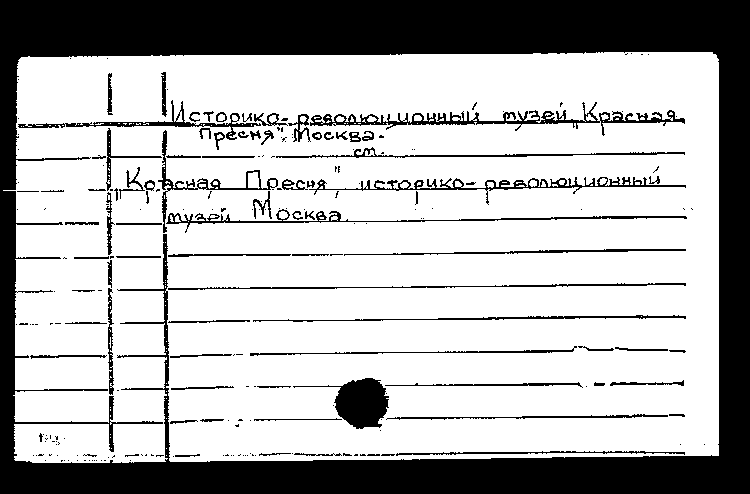 Историко-революционный музей „Красная
Пресня". Москва.
см.
„Красная Пресня", историко-революционный
музей Москва.